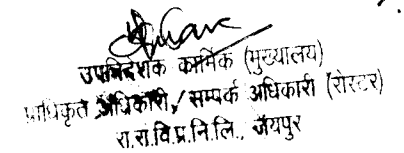 उपनिदेशक कार्मिक (मुख्यालय)
प्राधिकृत अधिकारी/सम्पर्क अधिकारी (रोस्टर)
रा.रा.वि.प्र.नि.लि., जयपुर